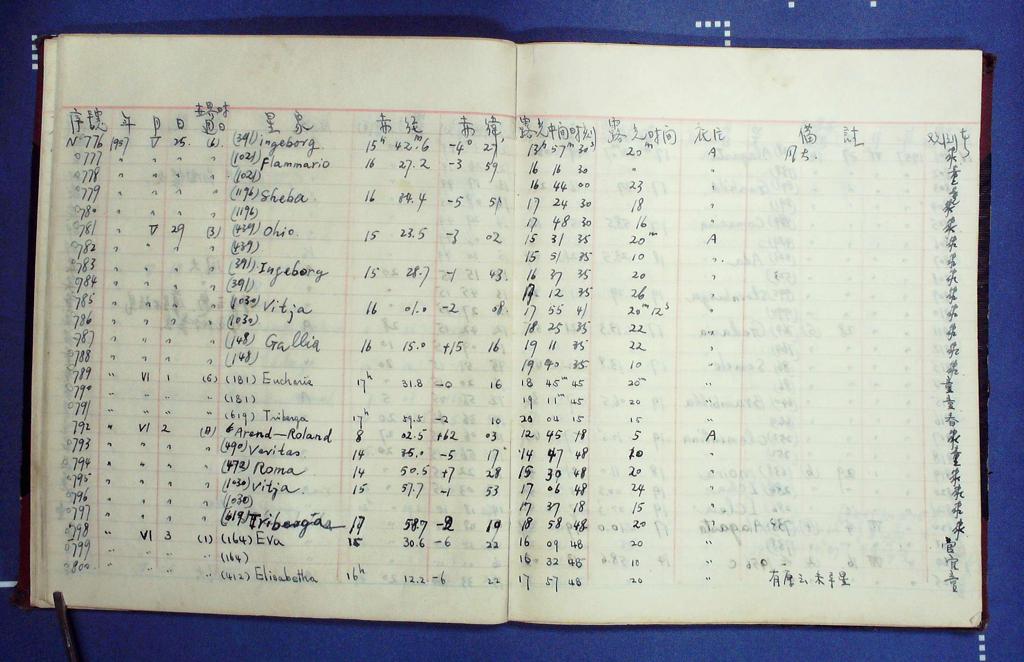 序號 年 月 日 週日 星象 赤經 赤緯 露光中間時刻 露光時間 底片 備註
N0776 1957 V 25. (6) (391) ingeborg 15h 42.6m -4° 27' 13h 57m 30s 20m A
0777 " " " (1021) Flammario 16 27.2 -3 59 16 16 30 " "
0778 " " " (1021) 16 44 00 23 "
0779 " " " (1196) Sheba 16 34.4 -5 51 17 24 30 18 "
0780 " " " (1196) 17 48 30 16 "
0781 " V 29 (3) (439) Ohio 15 23.5 -3 02 15 31 35 20m A
0782 " " " (439) 15 51 35 10 "
0783 " " " (391) Ingeborg 15 28.7 -1 43 16 37 35 20 "
0784 " " " (391) 17 12 35 26 "
0785 " " " (1030) Vitja 16 01.0 -2 08 17 55 41 20m 12s "
0786 " " " (1030) 18 25 35 22 "
0787 " " " (148) Gallia 16 15.0 +15 16 19 11 35 22 "
0788 " " " (148) 19 40 35 10 "
0789 " VI 1 (6) (181) Eucharis 17h 31.8 -0 16 18 45m 45 20 "
0790 " " " (181) 19 11m 45 20 "
0791 " " " (619) Triberga 17h 59.5 -2 10 20 04 15 15 "
0792 " VI 2 (日) Arend—Roland 8 02.5 +62 03 12 45 18 5 A
0793 " " " (490) Veritas 14 35.0 -5 17 14 47 48 20 "
0794 " " " (472) Roma 14 50.5 +7 28 15 30 48 20 "
0795 " " " (1030) Vitja 15 57.7 -1 53 17 06 48 24 "
0796 " " " (1030) 17 37 18 15 "
0797 " " " (619) Triberga 17 58.7 -2 19 18 58 48 20 "
0798 " VI 3 (1) (164) Eva 15 30.6 -6 22 16 09 48 20 "
0799 " " " (164) 16 32 48 10 "
0800 " " " (412) Elisabetha 16h 12.2 -6 22 17 57 48 20 " 有薄云